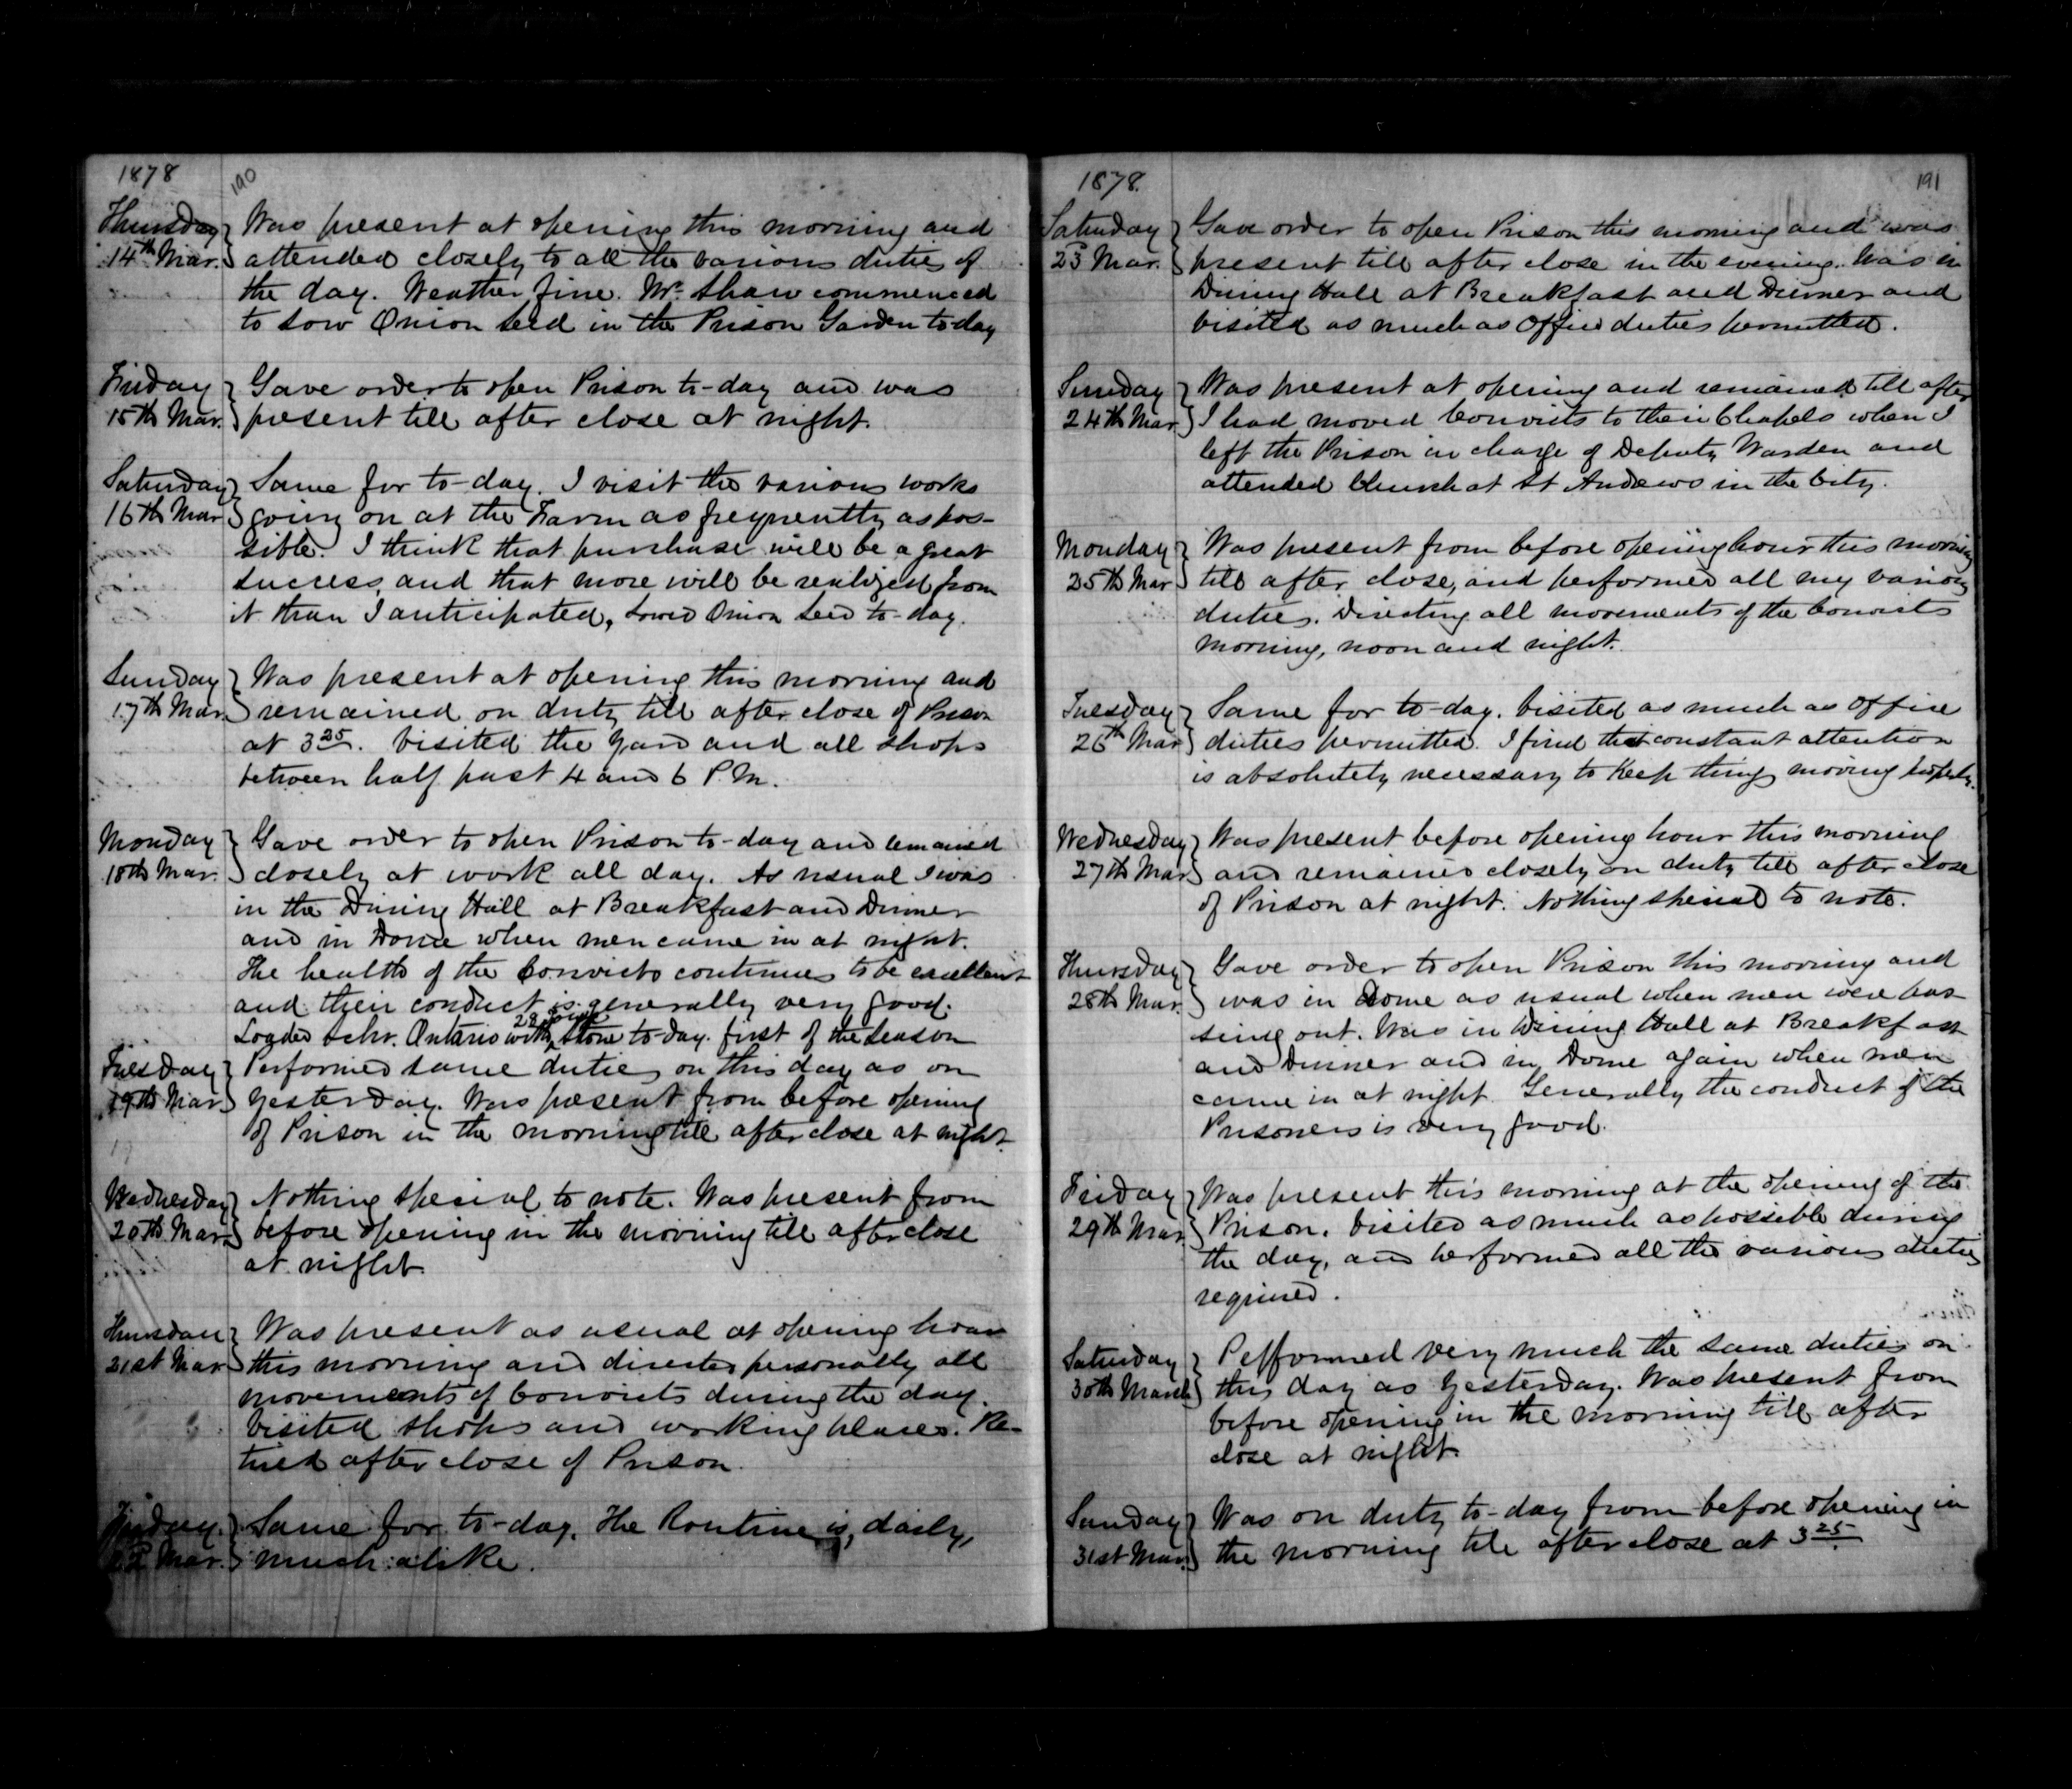 1878
190
Thursday
14th Mar.
Was present at opening this morning and
attended closely to all the various duties of
the day. Weather fine. Mr. Shaw commenced
to sow Onion Seed in the Prison Garden to day
Friday
15th Mar.
Gave order to open Prison to-day and was
present till after close at night.
Saturday
16th Mar
Same for to-day. I visit the various works
going on at the Farm as frequently as pos-
sible. I think that purchase will be a great
success, and that more will be realized from
it than I anticipated, Sowed Onion Seed to-day.
Sunday
17th Mar
Was present at opening this morning and
remained on duty till after close of Prison
at 3 25. Visited the Yard and all shops
between half past 4 and 6 P.M.
Monday
18th Mar.
Gave order to open Prison to-day and remained
closely at work all day. As usual I was
in the Dining Hall at Breakfast and Dinner
and in Dome when men came in at night.
The health of the Convicts continues to be excellent
and their conduct is generally very good.
Loaded Schr. Ontario with 28 toise Stone to-day. first of the Season
Tuesday
19th Mar
Performed same duties on this day as on
Yesterday. Was present from before opening
of Prison in the morning till after close at night.
Wednesday
20th Mar.
Nothing special to note. Was present from
before opening in the morning till after close
at night.
Thursday
21st Mar
Was present as usual at opening hour
this morning and directed personally all
movements of Convicts during the day.
Visited shops and working places. Re-
tired after close of Prison.
Friday
22 Mar.
Same for to-day. The Routine is, daily,
much alike.
1878.
191
Saturday
23 Mar.
Gave order to open Prison this morning and was
present till after close in the evening. Was in
Dining Hall at Breakfast and Dinner and
visited as much as Office duties permitted.
Sunday
24th Mar
Was present at opening and remained till after
I had moved Convicts to their Chapels when I
left the Prison in charge of Deputy Warden and
attended Church at St Andrews in the City.
Monday
25th Mar
Was present from before opening hour this morning
till after close, and performed all my various
duties. Directing all movements of the Convicts
morning, noon and night.
Tuesday
26th Mar
Same for to-day. Visited as much as Office
duties permitted. I find that constant attention
is absolutely necessary to Keep things moving properly.
Wednesday
27th Mar
Was present before opening hour this morning
and remained closely on duty till after close
of Prison at night. Nothing special to note.
Thursday
28th Mar.
Gave order to open Prison this morning and
was in Dome as usual when men were pas-
sing out. Was in Dining Hall at Breakfast
and Dinner and in Dome again when men
came in at night. Generally the conduct of the
Prisoners is very good.
Friday
29th Mar
Was present this morning at the opening of the
Prison. Visited as much as possible during
the day, and performed all the various duties
required.
Saturday
30th March
Performed very much the same duties on
this day as Yesterday. Was present from
before opening in the morning till after
close at night.
Sunday
31st Mar.
Was on duty to-day from before opening in
the morning till after close at 3 25.